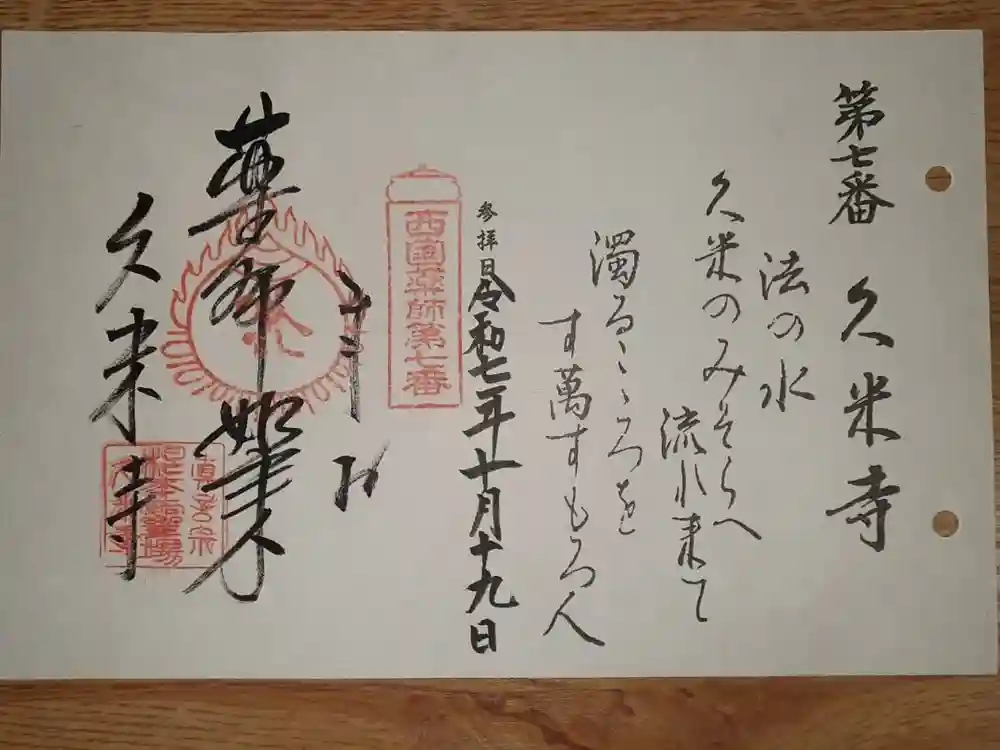 第七番 久米寺
法の水
久米のみそらへ
流れ来て
濁るこゝろを
す萬すもろ人
参拝日 令和七年十月十九日
西国薬師第七番
奉拝
薬師如来
久米寺
真言宗
根本霊場
久米寺